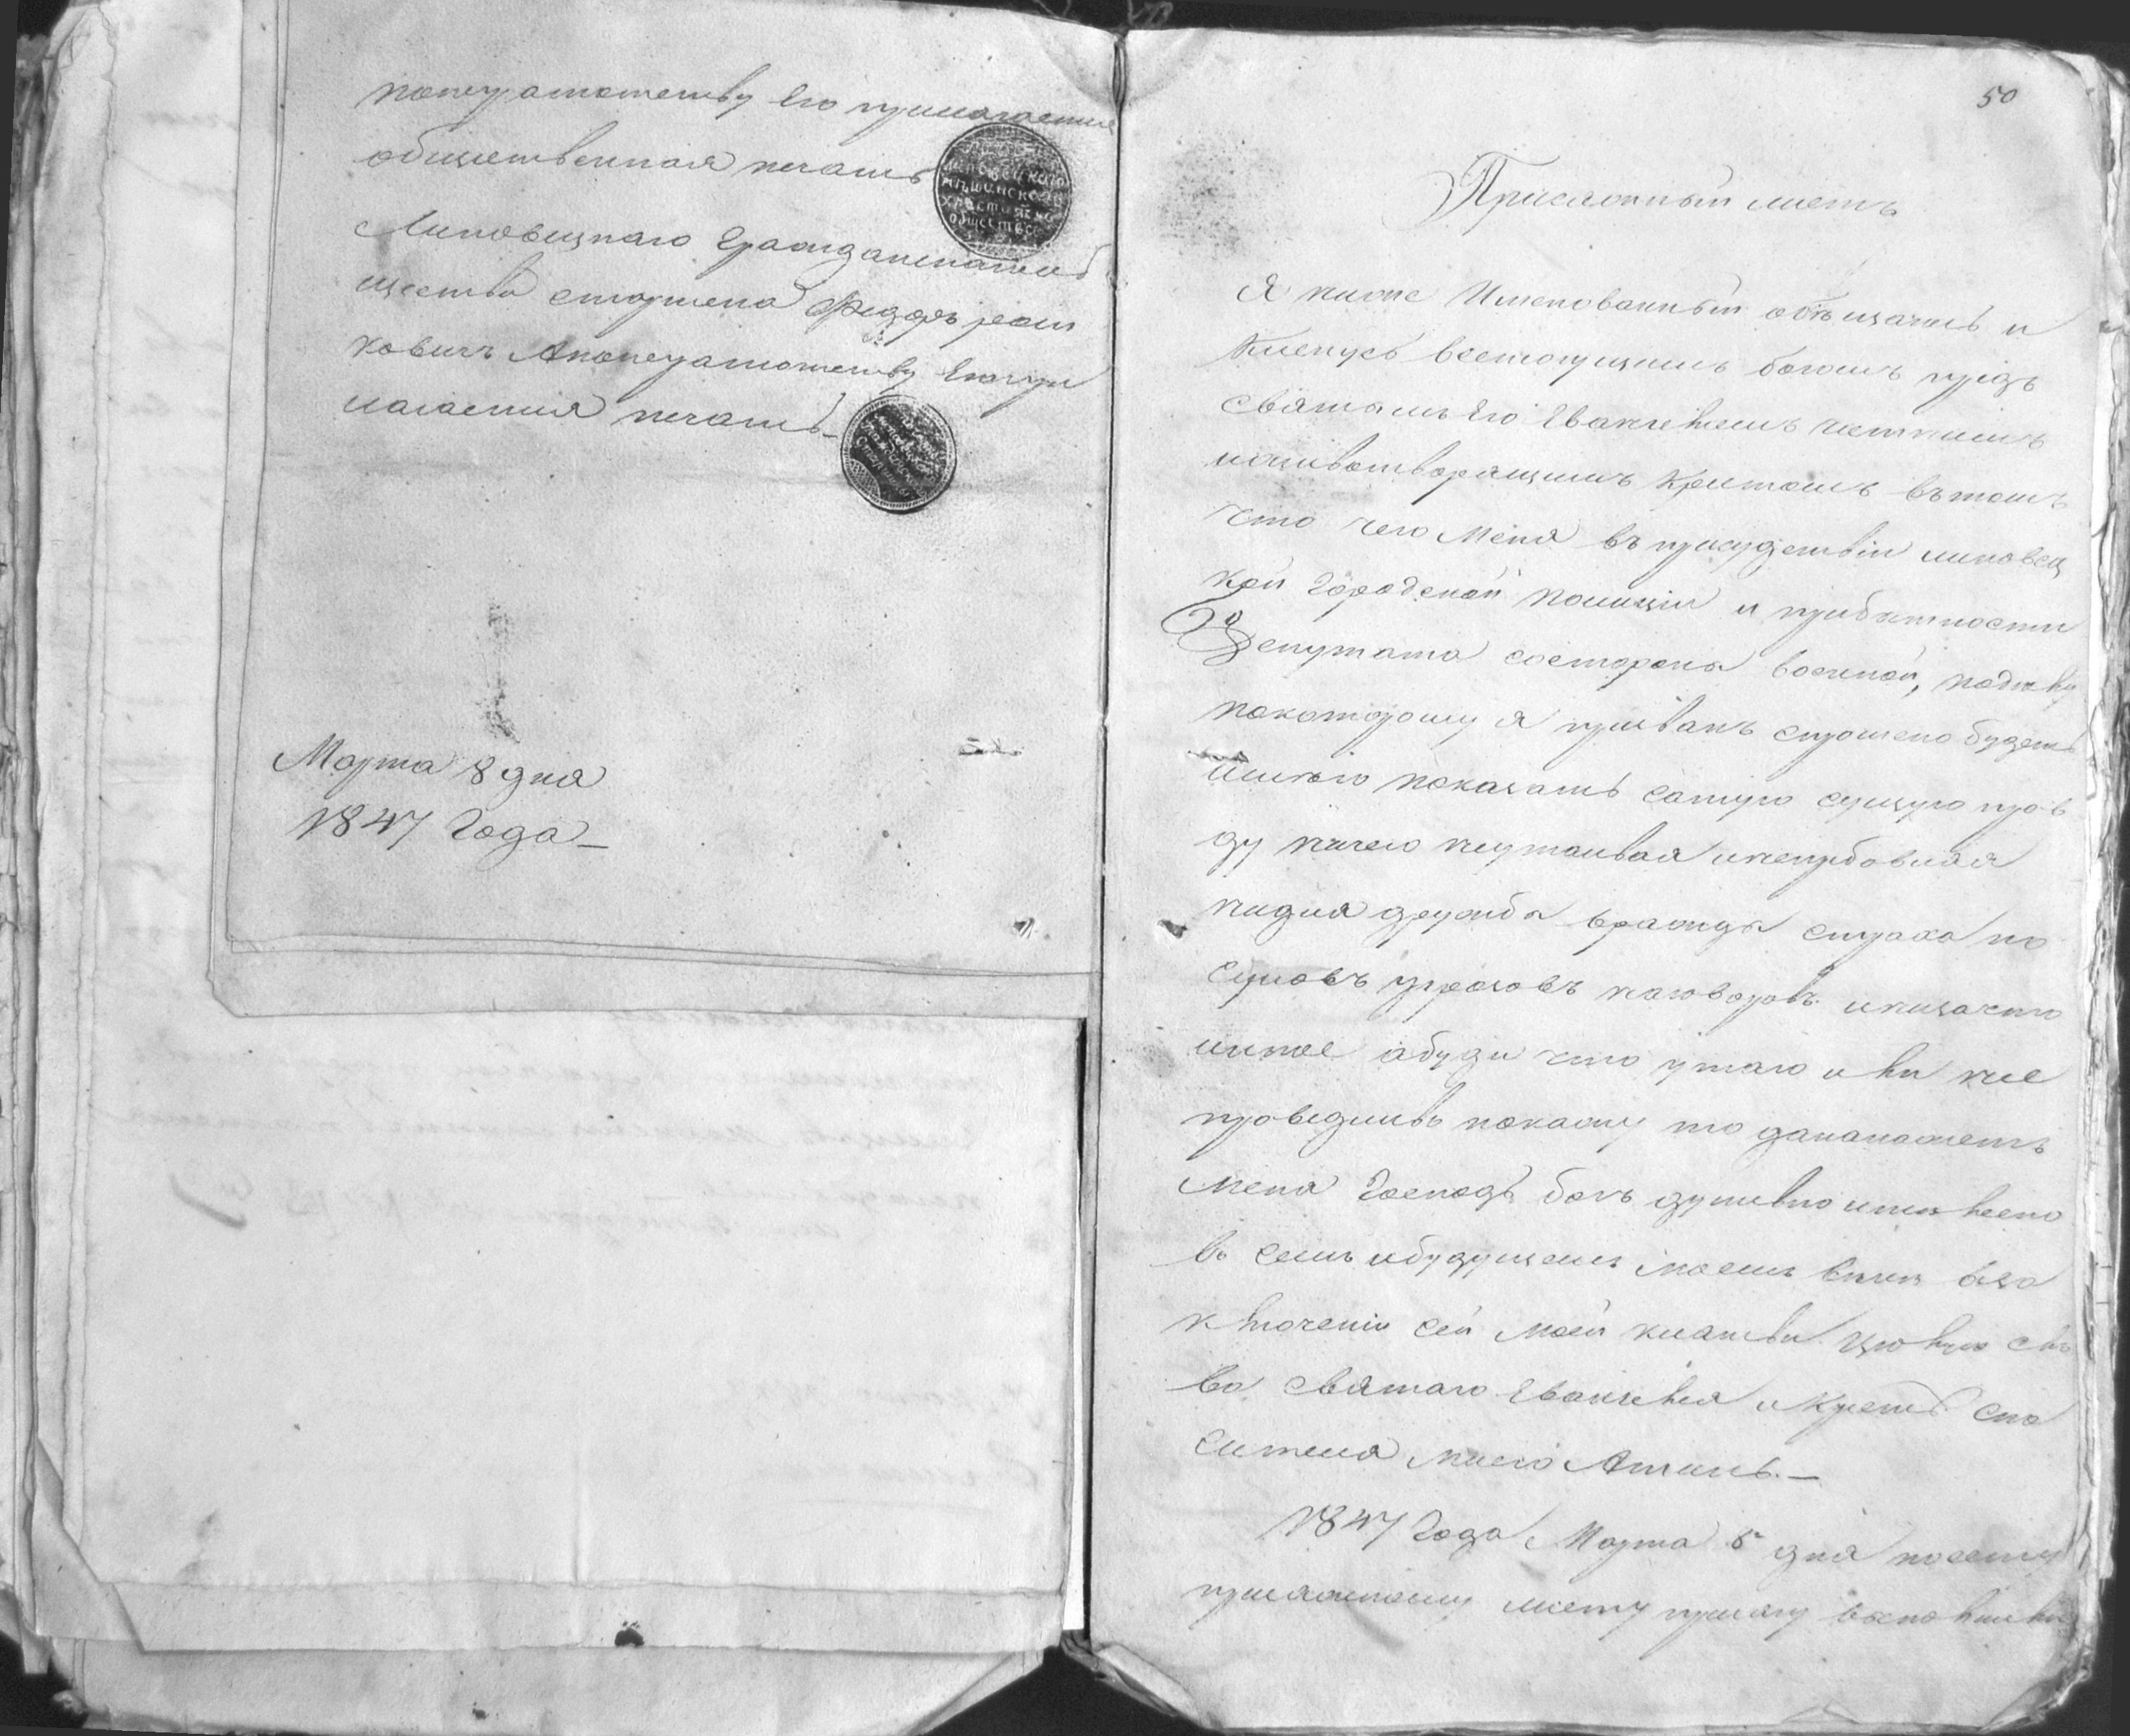 понеграмотству его прилагаетця
общественная печать
Липовецкаго
мещанскаго
христиаско
общества
Липовецкаго Гражданскагооб
щества старшена Федоръ
ковичъ Анонеграмотству Егопри
лагаетця печать
Марта 8 дня
1847 Года
50
Присяжный листъ
Я ниже Именованный объщаюсь и
Кленусь всемогущимъ богомъ предъ
святымъ Его Евангелиемъ
иживотворящимъ Крестомъ вътомъ
что чего Меня въ присудствіи липовец
кой Городской полиціи и прибытности
Депутата состороны военной, поделу
покоторому я призванъ спрошено будетъ
имѣю показать самую сущую прав
ду ничего неутаивая инеприбовляя
нидля дружбы вражды страха по
суловъ угрозовъ наговоровъ инизачто
иное абуди что утаю или не
праведливъ покажу то данакажетъ
меня Господь богъ душевно ителесно
въ семъ ибудущемъ моемъ веке вза
ключеніи сей моей клатвы цюлую сло
ва святаго Евангелия и Крестъ спа
сителя моего Аминь.
1847 Года Марта 8 дня посему
присяжному листу присягу выполнили